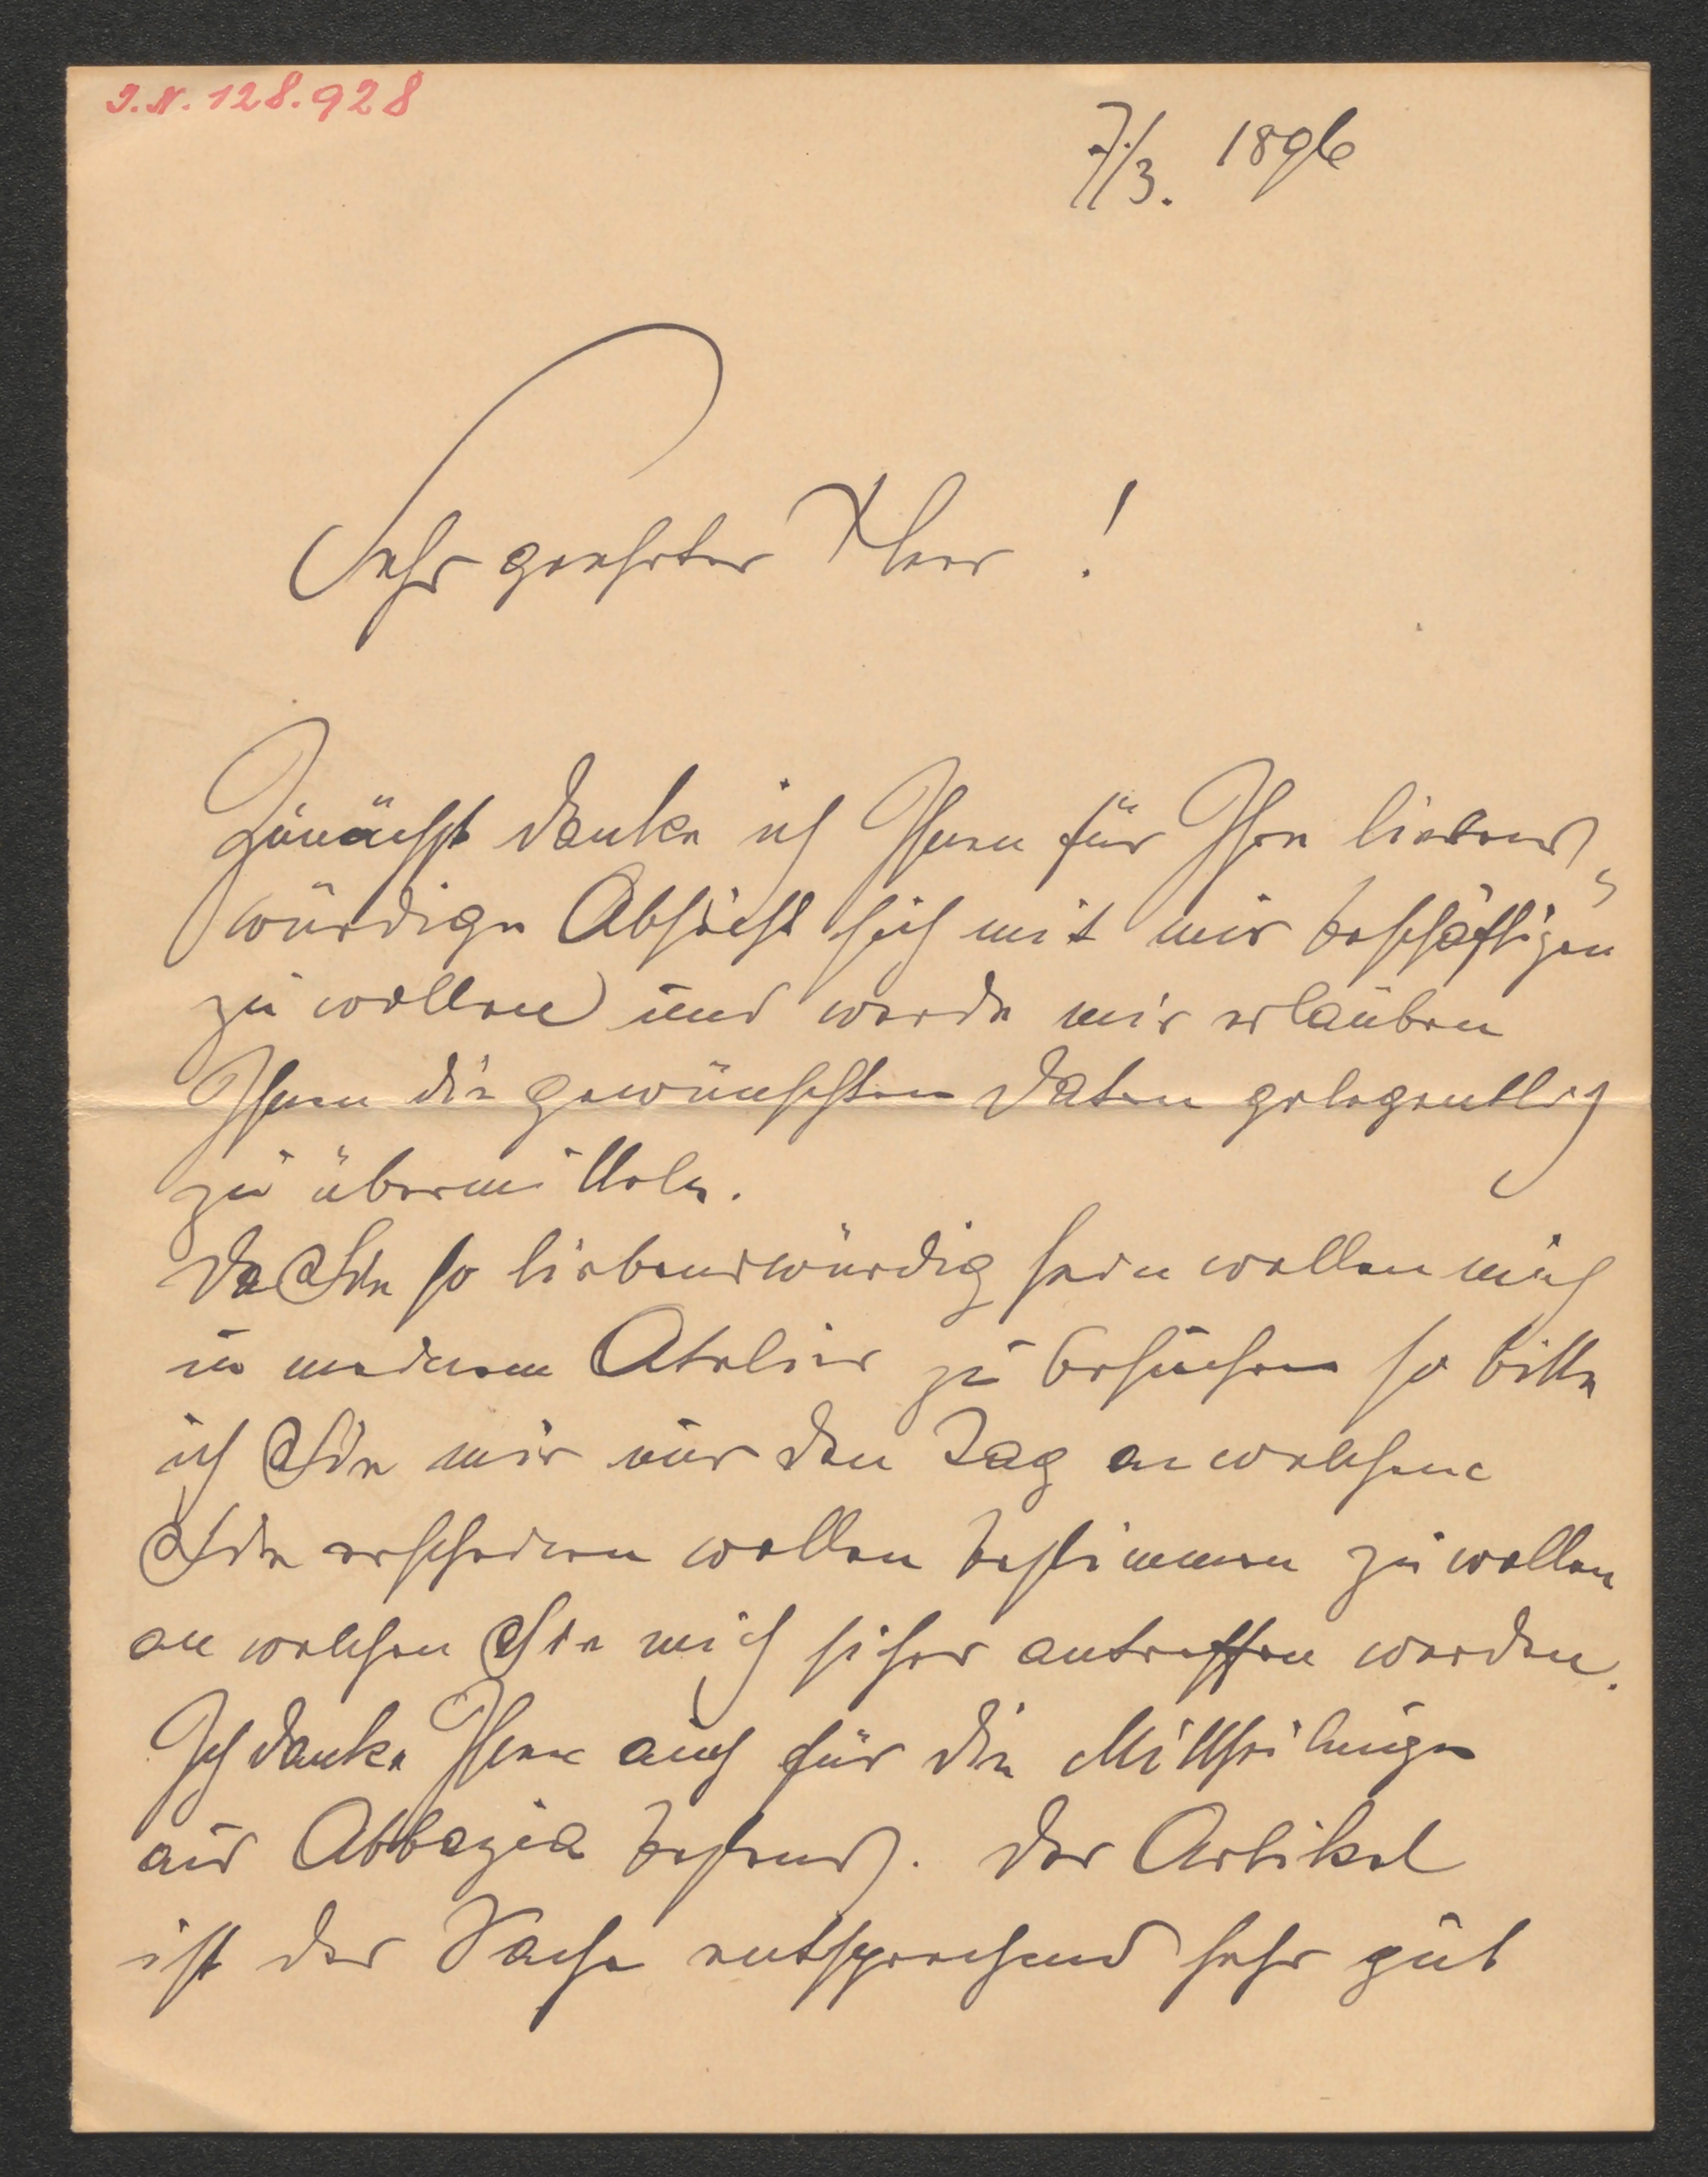 I.N. 128.928
7./3. 1896
Sehr geehrter Herr !
Zunächst danke ich Ihnen für Ihre liebens„
würdige Absicht sich mit mir beschäftigen
zu wollen und werde mir erlauben
Ihnen die gewünschten Daten gelegentlich
zu übermitteln.
Da Sie so liebenswürdig sein wollen mich
in meinem Atelier zu besuchen so bitte
ich Sie mir nur den Tag an welchem
Sie erscheinen wollen bestimmen zu wollen
an welchen Sie mich sicher antreffen werden.
Ich danke Ihnen auch für die Mittheilungen
aus Abbazia bestens. Der Artikel
ist der Sache entsprechend sehr gut